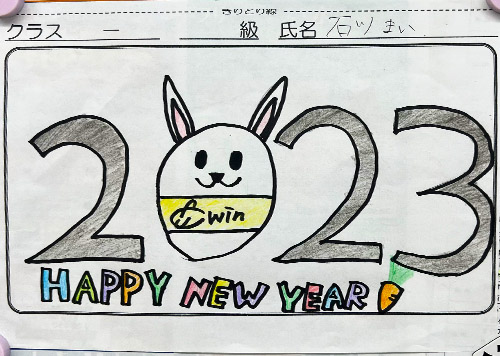 きりとり線
クラス 一 級 氏名 石川 まい
2023
win
HAPPY NEW YEAR